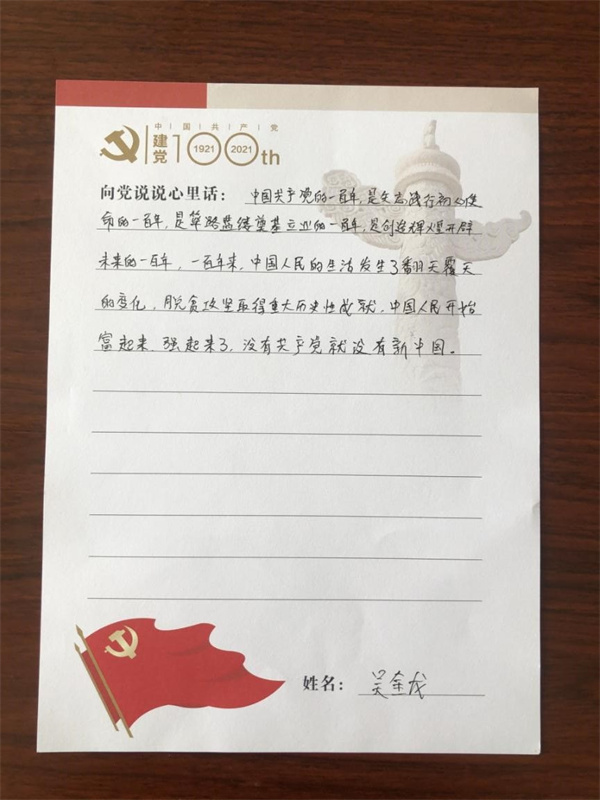 中国共产党
建党
1921
2021
100th
向党说说心里话：中国共产党的一百年，是矢志践行初心使
命的一百年，是筚路蓝缕奠基立业的一百年，是创造辉煌开辟
未来的一百年，一百年来，中国人民的生活发生了翻天覆天
的变化，脱贫攻坚取得重大历史性成就，中国人民开始
富起来 强起来了，没有共产党就没有新中国。
姓名：吴金成